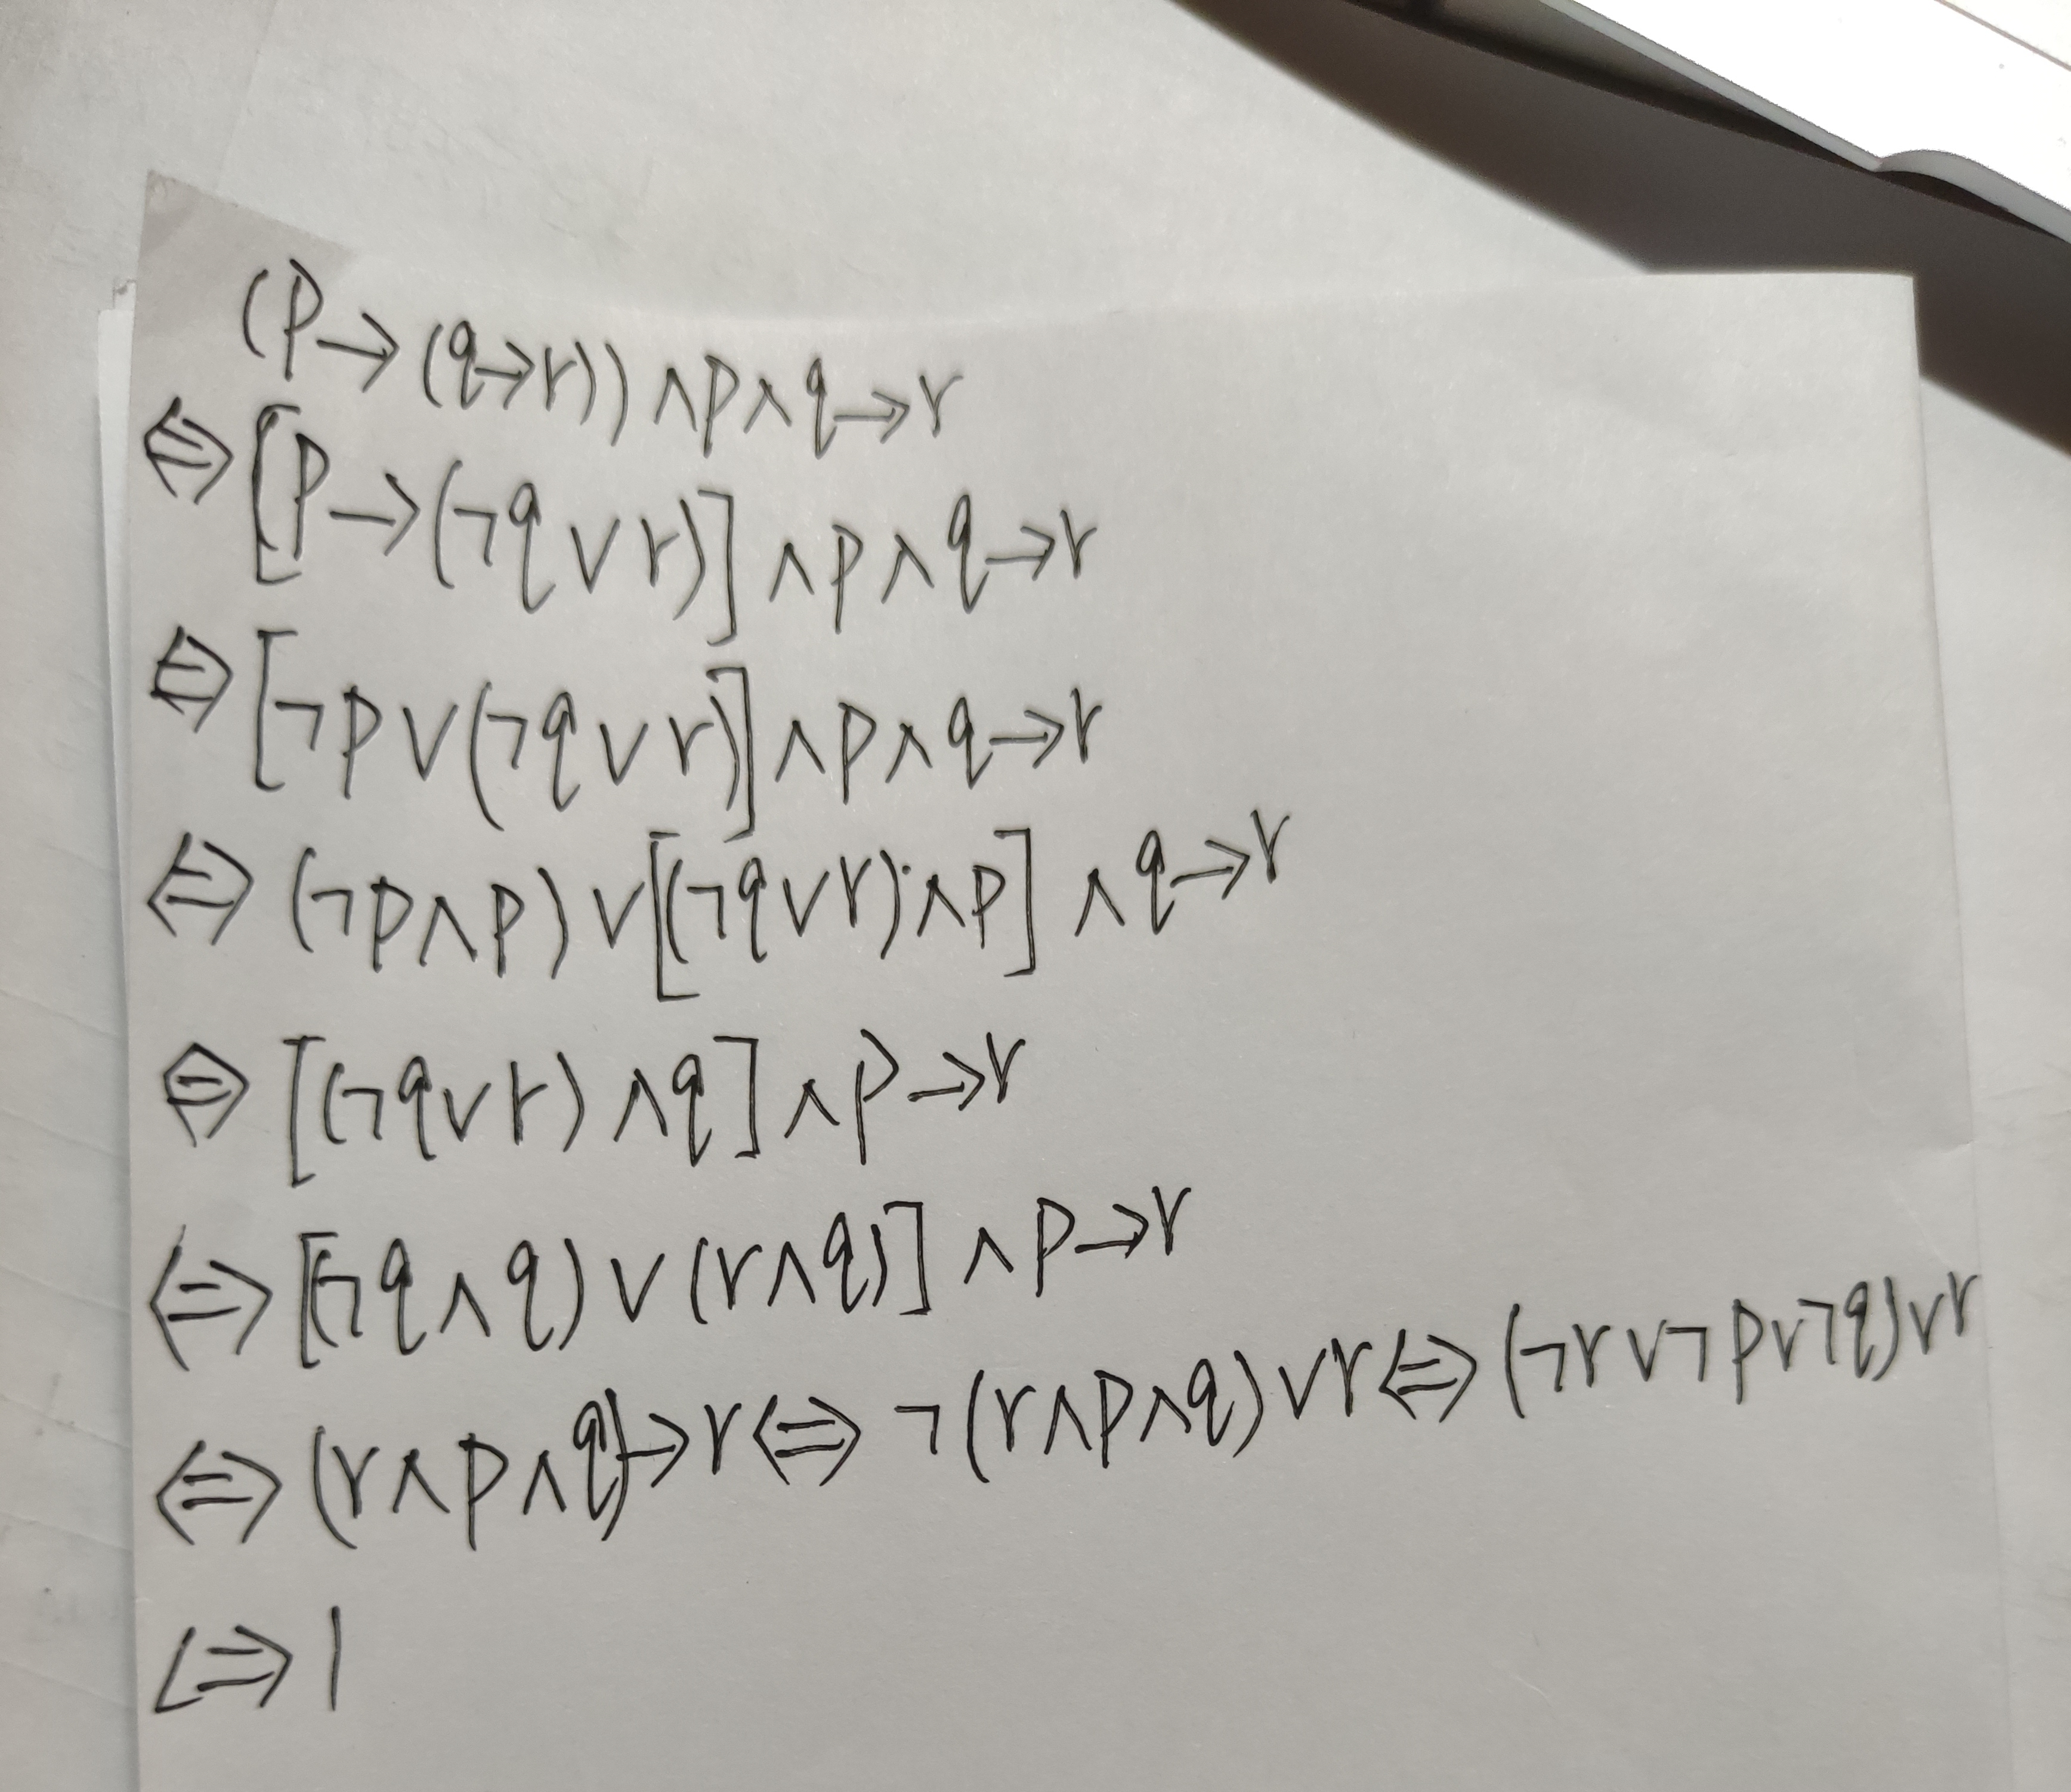 (p→(q→r))∧p∧q→r
⇔[p→(¬q∨r)]∧p∧q→r
⇔[¬p∨(¬q∨r)]∧p∧q→r
⇔(¬p∧p)∨[(¬q∨r)∧p]∧q→r
⇔[(¬q∨r)∧q]∧p→r
⇔[(¬q∧q)∨(r∧q)]∧p→r
⇔(r∧p∧q)→r⇔¬(r∧p∧q)∨r⇔(¬r∨¬p∨¬q)∨r
⇔1